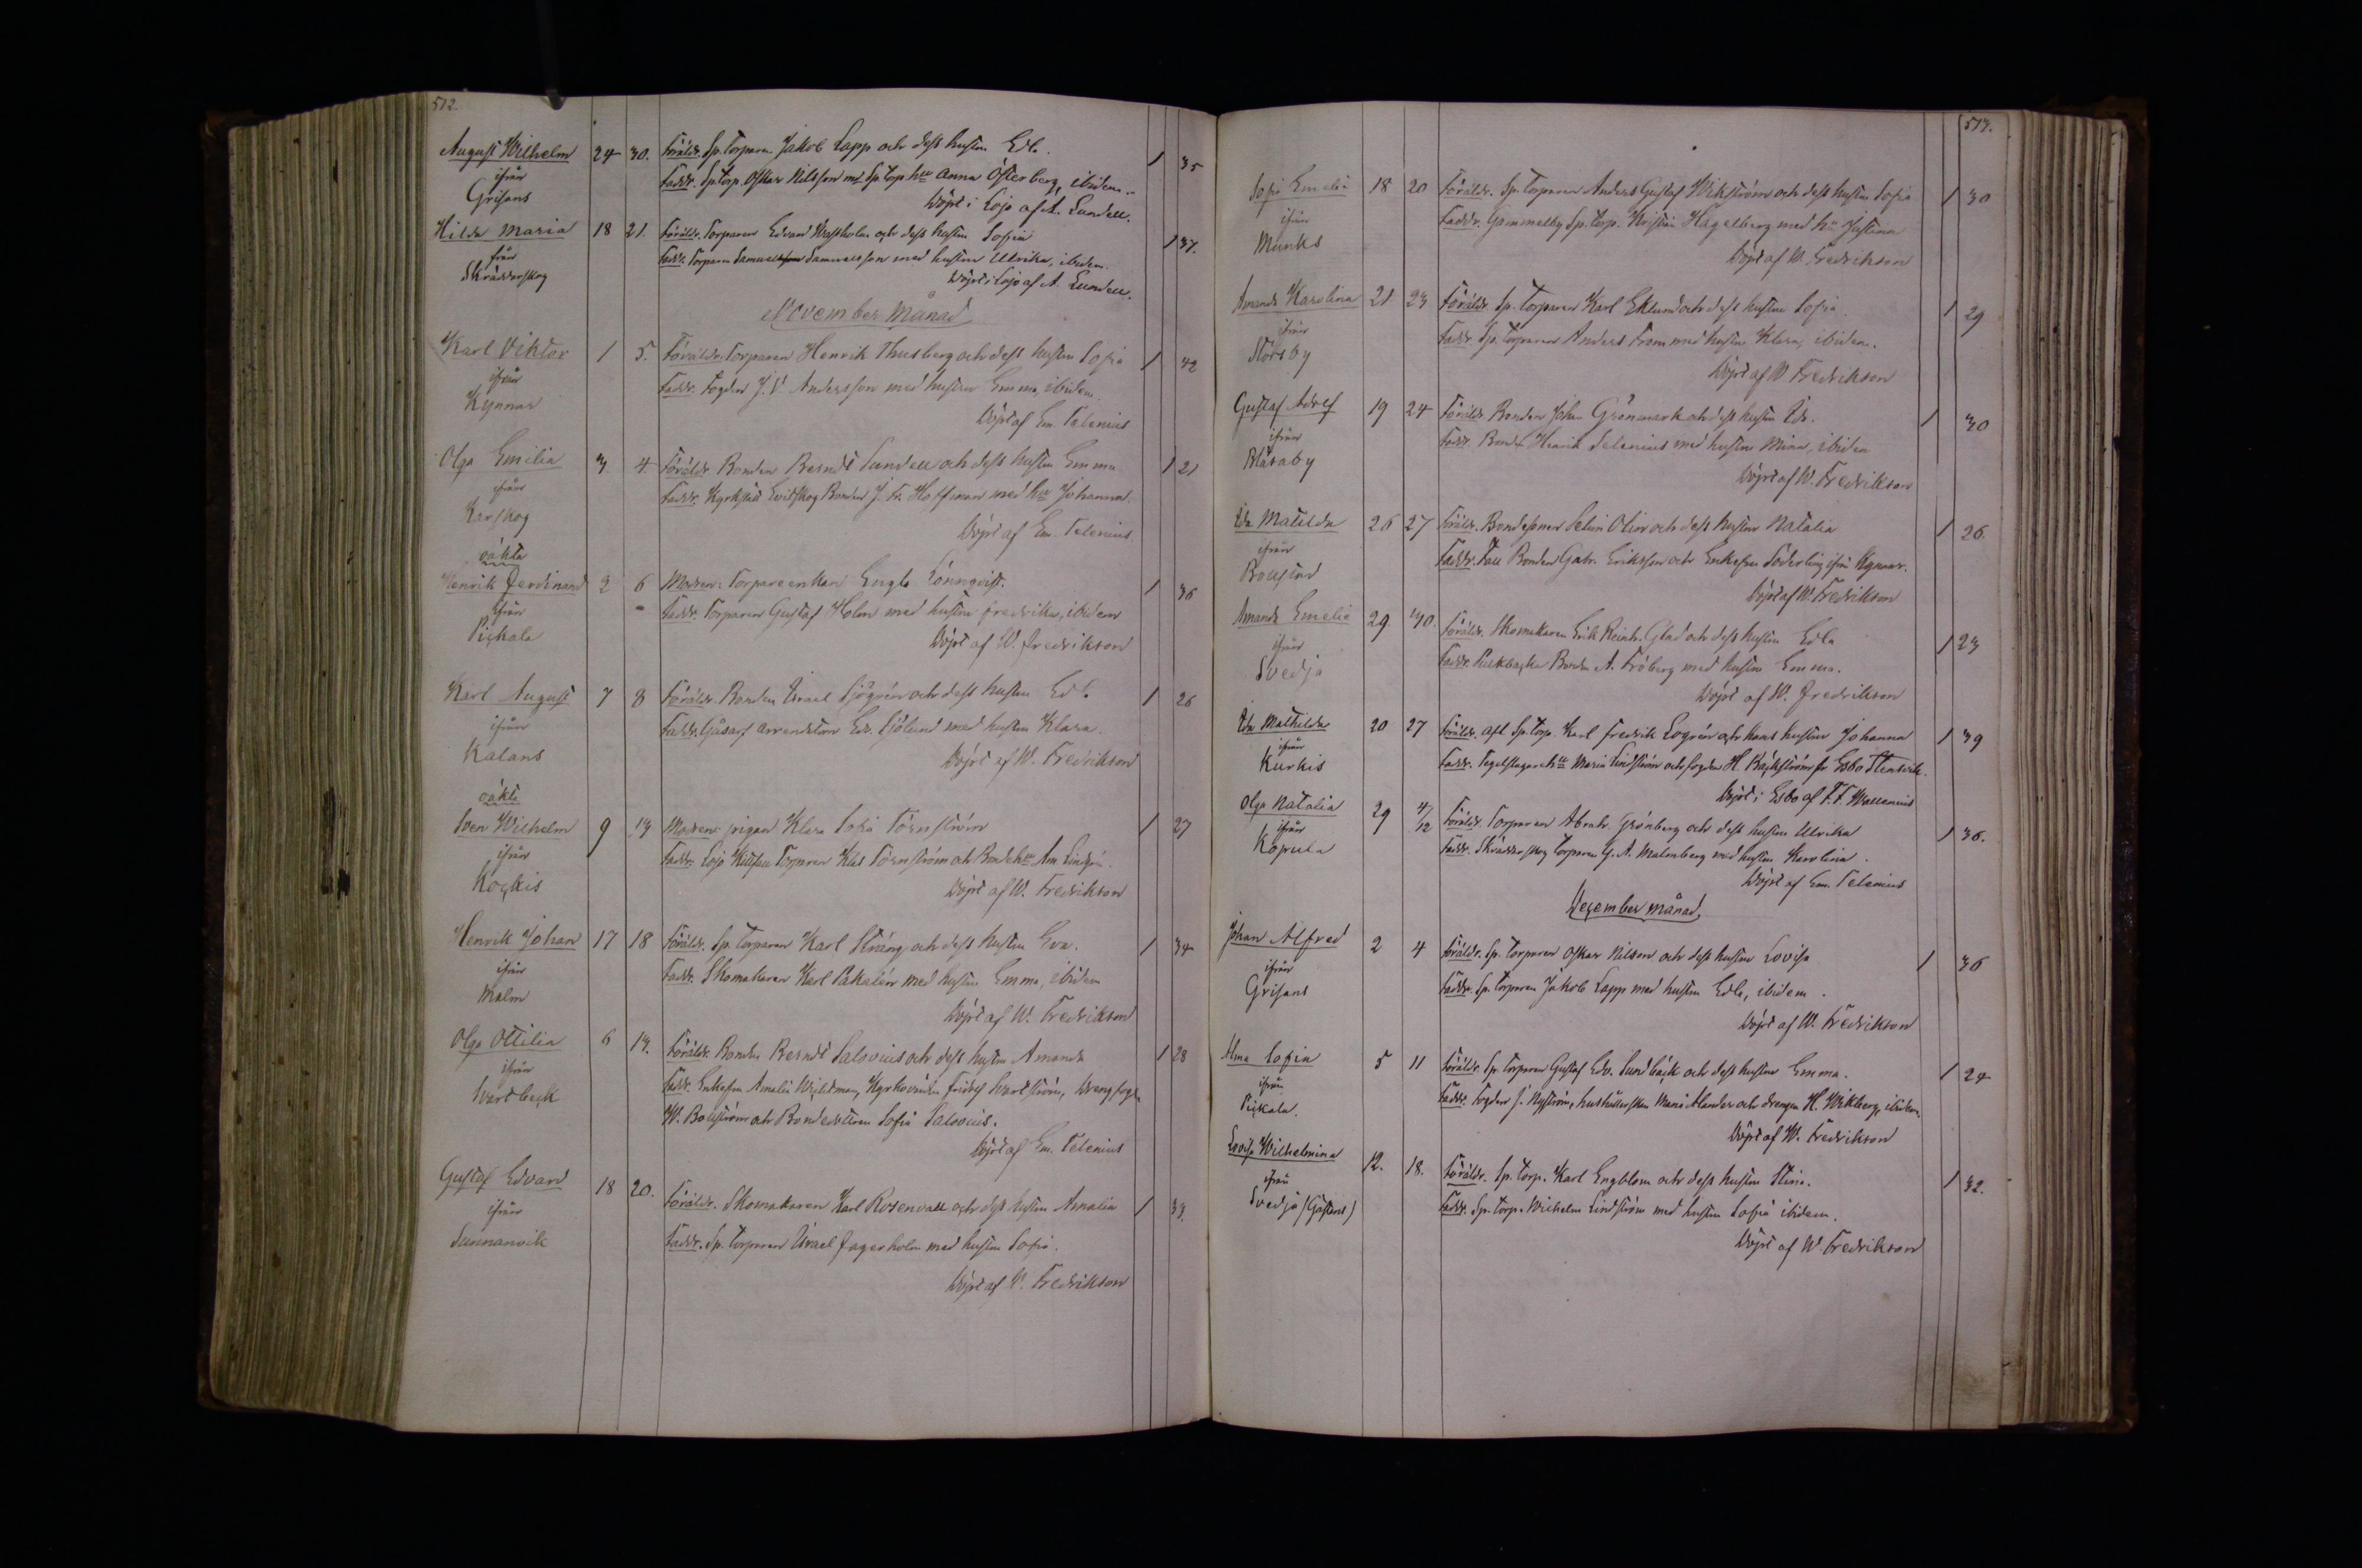 512.
August Wilhelm 24 30. Föräldr. Sp. Torparen Jakob Lapp och dess hustru Edla. 1 35
ifrån Faddr. Sp. Torp. Oskar Nilsson m. Sp. Torp. hu Anna Österberg, ibidem.
Grisans Döpt i Lojo af A. Lundell.
Hilda Maria 18 21. Föräldr. Torparen Edvard Wastholm och dess hustru Sofia 1 37.
från Faddr. Torparen Samuel Samuelsson med hustru Ulrika, ibidem.
Skräddarskog Döpt i Lojo af A. Lundell.
November Månad
Karl Viktor 1 5. Föräldr. Torparen Henrik Thusberg och dess hustru Sofia 1 42
ifrån Faddr. Fogden J. V. Andersson med hustru Emma, ibidem.
Kynnar Döpt af Em. Telenius
Olga Emilia 3 4. Föräldr. Bonden Berndt Sundell och dess hustru Emma 1 21
ifrån Faddr. Kyrkslätt Evitskog Bonden J. Fr. Hoffman med hu Johanna.
Karskog Döpt af Em. Telenius.
oäkta
Henrik Ferdinand 2 6 Modren: Torpareenkan Engla Lönnqvist. 1 36
ifrån Faddr. Torparen Gustaf Holm med hustru Fredrika, ibidem
Pickala Döpt af W. Fredrikson
Karl August 7 8 Föräldr. Bonden Israel Sjögrén och dess hustru Edla 1 26
ifrån Faddr. Gåsars arrendatorn Edv. Sjölund med hustru Klara.
Kalans Döpt af W. Fredrikson
oäkta
Sven Wilhelm 9 13 Modren: pigan Klara Sofia Törnström 1 27
ifrån Faddr. Lojo Torparen Klas Törnström och Bondehu
Kockis Döpt af W. Fredrikson
Henrik Johan 17 18 Föräldr. Sp. Torparen Karl Sträng och dess hustru Eva. 1 34
ifrån Faddr. Skomakaren Karl Pakalén med hustru Emma, ibidem
Malm Döpt af W. Fredrikson
Olga Ottilia 6 13. Föräldr. Bonden Berndt Salovius och dess hustru Amanda 1 28
ifrån Faddr. Enkefru Amalia Wickman, Kyrkovärden Fridolf Svartström, Drengfogden
Svartbeck W. Bollström och Bondedottren Sofia Salovius.
Döpt af Em. Telenius
Gustaf Edvard 18 20. Föräldr. Skomakaren Karl Rosenvall och dess hustru Amalia 1 33.
ifrån Faddr. Sp. Torparen Israel Fagerholm med hustru Sofia.
Sunnanvik Döpt af W. Fredrikson
513.
Sofia Emelia 18 20 Föräldr. Sp. Torparen Anders Gustaf Wikström och dess hustru Sofia 1 30
ifrån Faddr. Gammelby Sp. Torp. Kristian Hagelberg med hu Justina
Munks Döpt af W. Fredrikson
Amanda Karolina 21 23 Föräldr. Sp. Torparen Karl Eklund och dess hustru Sofia. 1 29
ifrån Faddr. Sp. Torparen Anders From med hustru Klara, ibidem.
Störsby Döpt af W. Fredrikson
Gustaf Adolf 19 24 Föräldr. Bonden Johan Grönmark och dess hustru Ida. 1 30
ifrån Faddr. Bonden Henrik Selenius med hustru Mina, ibidem
Blåsaby Döpt af W. Fredrikson
Ida Matilda 26 27 Föräldr. Bondesonen Selim Olin och dess hustru Natalia 1 26.
ifrån Faddr. Tall Bonden Gabr. Eriksson och Enkefru Söderling ifrån Kynnar.
Bollstad Döpt af W. Fredrikson
Amanda Emelia 29 30. Föräldr. Skomakaren Erik Reinh. Glad och dess hustru Edla 1 23
ifrån Faddr. Purkbacka Bonden A. Fröberg med hustru Emma.
Svedja Döpt af W. Fredrikson
Ida Mathilda 20 27 Föräldr. afl. Sp. Torp. Karl Fredrik Logrén och hans hustru Johanna 1 39
ifrån Faddr. Tegelslagarehu Maria Lindström och fogden H. Bäckström fr. Esbo Stensvik.
Kurkis Döpt i Esbo af F. F. Wallenius
Olga Natalia 29 4/12 Föräldr. Torparen Abrah. Grönberg och dess hustru Ulrika 1 36.
ifrån Faddr. Skräddarskog Torparen G. A. Malmberg med hustru Karolina.
Kopula Döpt af Em. Telenius
December månad,
Johan Alfred 2 4 Föräldr. Sp. Torparen Oskar Nilson och dess hustru Lovisa 1 36
ifrån Faddr. Sp. Torparen Jakob Lapp med hustru Edla, ibidem.
Grisans Döpt af W. Fredrikson
Alma Sofia 5 11 Föräldr. Sp. Torparen Gustaf Edv. Sundbäck och dess hustru Emma. 1 24
ifrån Faddr. Fogden J. Nyström, hushållerskan Maria Alander och drengen H. Wikberg, ibidem.
Pickala. Döpt af W. Fredrikson
Lovisa Wilhelmina 12. 18. Föräldr. Sp. Torp. Karl Engblom och dess hustru Stina. 1 32.
ifrån Faddr. Sp. Torp. Wilhelm Lindström med hustru Sofia ibidem.
Svedja (Gåstans) Döpt af W. Fredrikson